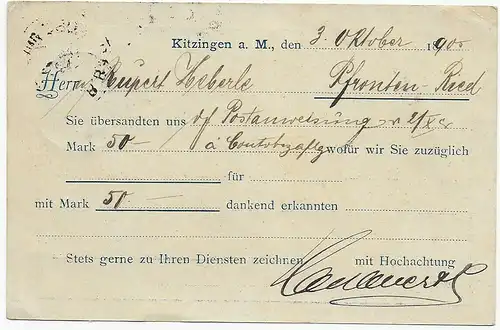 Kitzingen a. M., den 3. Oktober 1900
Herrn Rupert Heberle Pfronten-Ried
Sie übersandten uns p/ Postanweisung v. 2/X cr
Mark 50 — à Contozahlg wofür wir Sie zuzüglich
für
mit Mark 50 — dankend erkannten
Stets gerne zu Ihren Diensten zeichnen mit Hochachtung